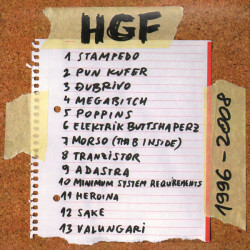 HGF
1 STAMPEDO
2 PUN KUFER
3 DUBRIVO
4 MEGABITCH
5 POPPINS
6 ELEKTRIK BUTTSHAPERZ
7 MORSO (TMB INSIDE)
8 TRANZISTOR
9 ADASTRA
10 MINIMUM SYSTEM REQUIREMENTS
11 HEROINA
12 SAKE
13 VALUNGARI
1996-2008